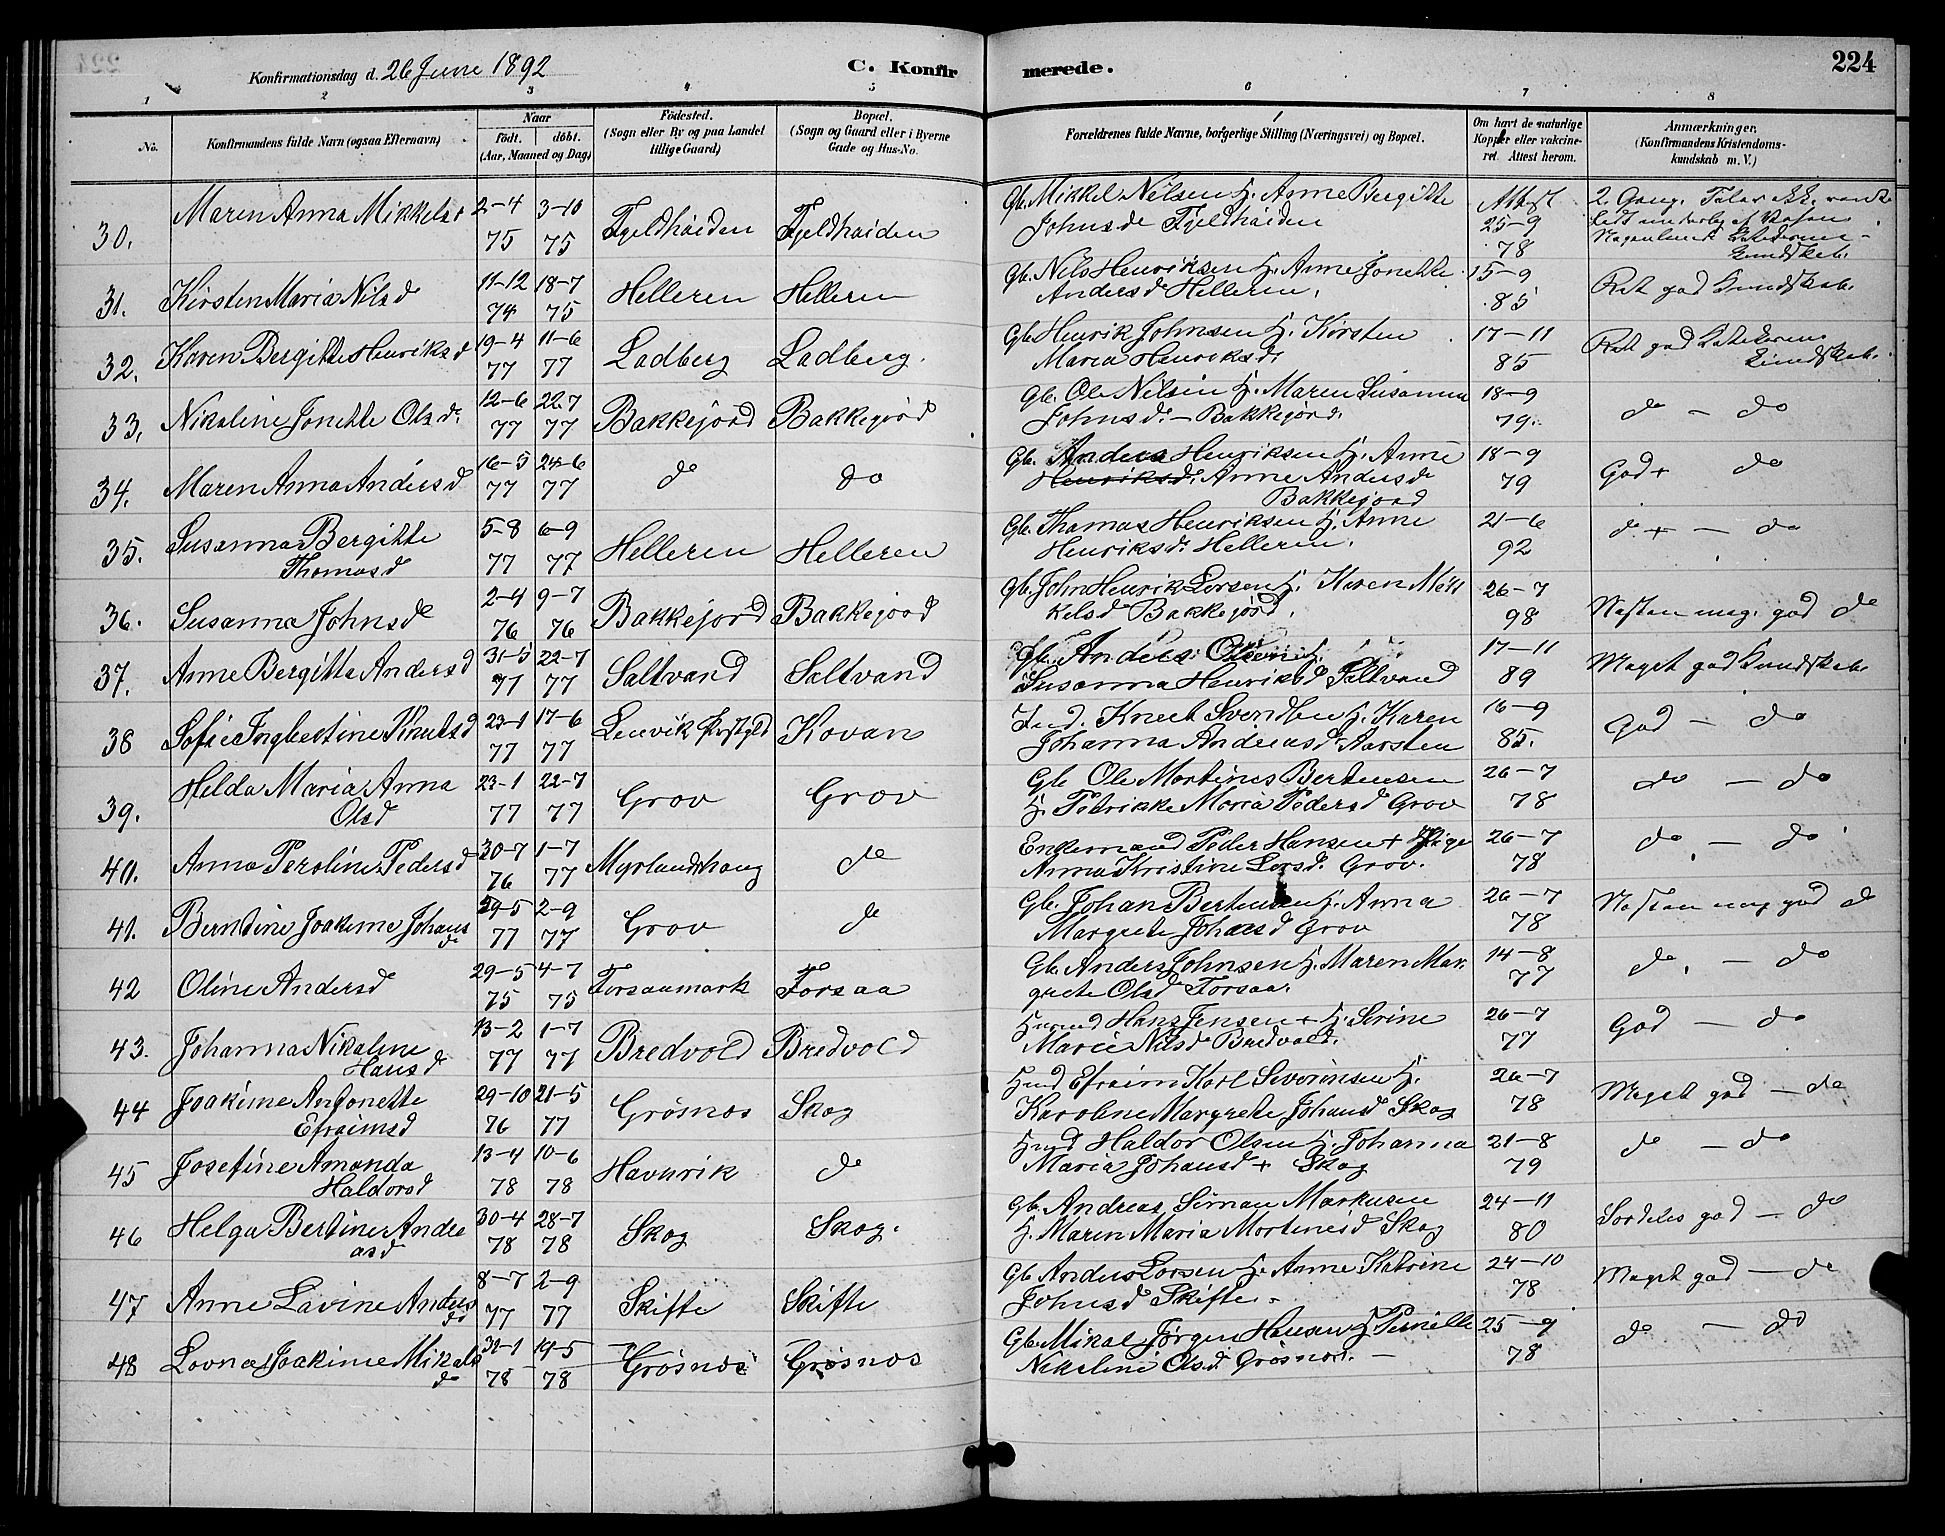 Konfirmationsdag d. 26 June 1892
C. Konfir
merede.
224
1 2 3 4 5 6 7 8
No.
Konfirmandens fulde Navn (ogsaa Efternavn)
Naar
födt. döbt.
(Aar, Maaned og Dag)
Födested.
(Sogn eller By og paa Landet
tillige Gaard)
Bopæl.
(Sogn og Gaard eller i Byerne
Gade og Hus-No.
Forældrenes fulde Navne, borgerlige Stilling (Næringsvei) og Bopæl.
Om havt de naturlige
Kopper eller vakcine-
ret. Attest herom.
Anmærkninger.
(Konfirmandens Kristendoms-
kundskab m. V.)
30. Maren Anna Mikkelsd 2-4 75 3-10 75 Fjeldheiden Fjeldhaiden
Gb. Mikkel Nilsen H. Anne Bergitte
Johnsd Fjeldhaiden
Attest 25-9 78
2. Gang.
31. Kirsten Maria Nilsd 11-12 74 18-7 75 Helleren Helleren
Gb. Nils Henriksen H. Anne Jonette
Andersd Helleren.
15-9 85
Ret god Kundskab.
32. Karen Bergitte Henriksd 19-4 77 11-6 77 Ladberg Ladberg.
Gb. Henrik Johnsen H. Kirsten
Maria Henriksd.
17-11 85
Ret god
33. Nikoline Jonette Olsd. 12-6 77 22-7 77 Bakkejord Bakkejord
Gb. Ole Nilsen H. Maren Susanna
Johnsd. - Bakkejord.
18-9 79.
do - do
34. Maren Anna Andersd 16-5 77 24-6 77 do do
Gb. Anders Henriksen H. Anne
Henriksd. Anne Andersd
Bakkejord
18-9 79
God + do
35. Susanna Bergitte
Thomasd
5-8 77 6-9 77 Helleren Helleren
Gb. Thomas Henriksen H. Anne
Henriksd. Helleren.
21-6 92
do + - do
36. Susanna Johnsd 2-4 76 9-7 76 Bakkejord Bakkejord
Gb. John Henrik Larsen H. Karen Mik
kelsd Bakkejord.
26-7 98
Næsten meg. god do
37. Anne Bergitte Andersd 31-5 77 22-7 77 Saltvand Saltvand
Gb. Anders Olsen H.
Susanna Henriksd Saltvand
17-11 89
Meget god Kundskab
38 Sofie Ingbertine Knutsd 23-1 77 17-6 77 Lenvik Prstgld Kovan
Ind. Knut Svendsen H. Karen
Johanna Andreasd Aarsten
16-9 85.
God - do
39. Helda Maria Anna
Olsd
23-1 77 22-7 77 Grov Grov
Gb Ole Martinus Bertensen
H. Petrikke Maria Pedersd Grov
26-7 78
do - do
40. Anna Peroline Pedersd 30-7 76 1-7 77 Myrlandshaug do
Enkemand Peder Hansen + Pige
Anna Kristine Larsd. Grov.
26-7 78
do - do
41. Berntine Joakime Johans
d
29-5 77 2-9 77 Grov do
Gb. Johan Bertensen H. Anna
Margrete Johansd Grov
26-7 78
Næsten meg god do
42 Oline Andersd 29-5 75 4-7 75 Forsaamark Forsaa
Gb. Anders Johnsen H. Maren Mar
grete Olsd Forsaa.
14-8 77
do. - do
43. Johanna Nikoline
Hansd
13-2 77 1-7 77 Bredvold Bredvold
Husmd Hans Jensen + H. Serine
Marie Nilsd Bredvold.
26-7 77
God - do
44 Joakime Antonette
Efraimsd
29-10 76 21-5 77 Grøsnes Skog
Husmd Efraim Karl Severinsen H.
Karoline Margrete Johansd Skog
26-7 78
Meget god - do
45 Josefine Amanda
Haldorsd
13-4 78 10-6 78 Havnvik do
Husmd Haldor Olsen H. Johanna
Maria Johansd + Skog
21-8 79
do - do
46 Helga Bertine Andre
asd
30-4 78 28-7 78 Skog Skog.
Gb. Andreas Simon Markusen
H. Maren Maria Mortensd Skog
24-11 80
Særdeles god - do
47 Anne Lavine Anders
d
8-7 77 2-9 77 Skifte Skifte
Gb Anders Larsen H. Anne Katrine
Johnsd Skifte.
24-10 78
Meget god - do
48 Lovna Joakime Mikals
d
31-1 78 19-5 78 Grøsnes Grøsnes
Gb. Mikal Jørgen Hansen H. Pernille
Nikoline Olsd Grøsnes. -
25-9 78
do - do